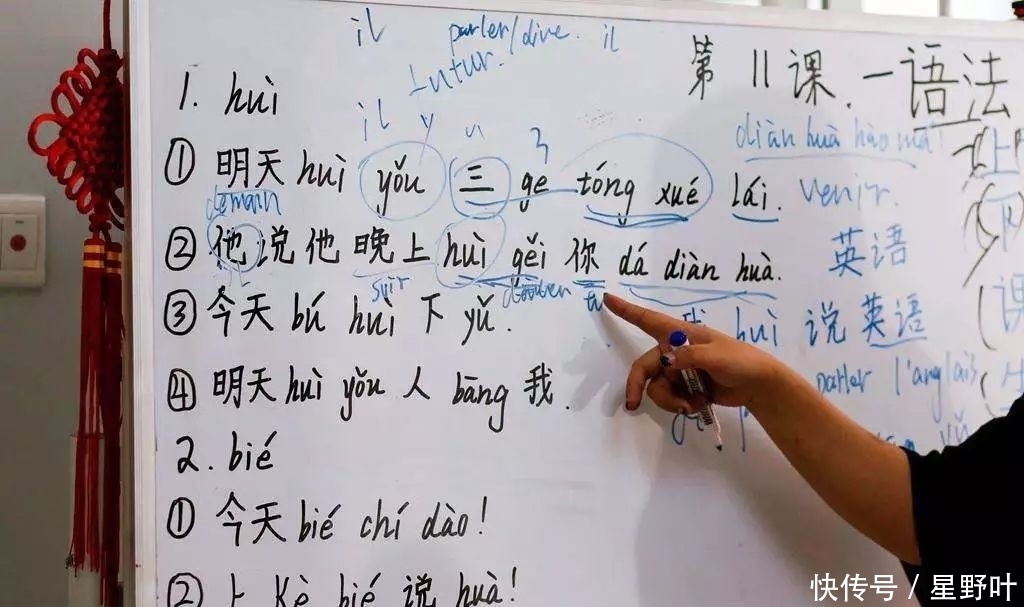 il parler/dire. il
Futur.
第11课.一语法
1. huì
il y
diàn huà hào mǎ
①明天huì yǒu 三 ge tóng xué lái. venir.
②他说他晚上huì gěi 你 dá diàn huà. 英语
soir tu
③今天 bú huì 下 yǔ. huì 说英语
④明天huì yǒu 人 bāng 我.
parler l'anglais
2. bié
①今天 bié chí dào!
②上 Kè bié 说 huà!
快传号 / 星野叶